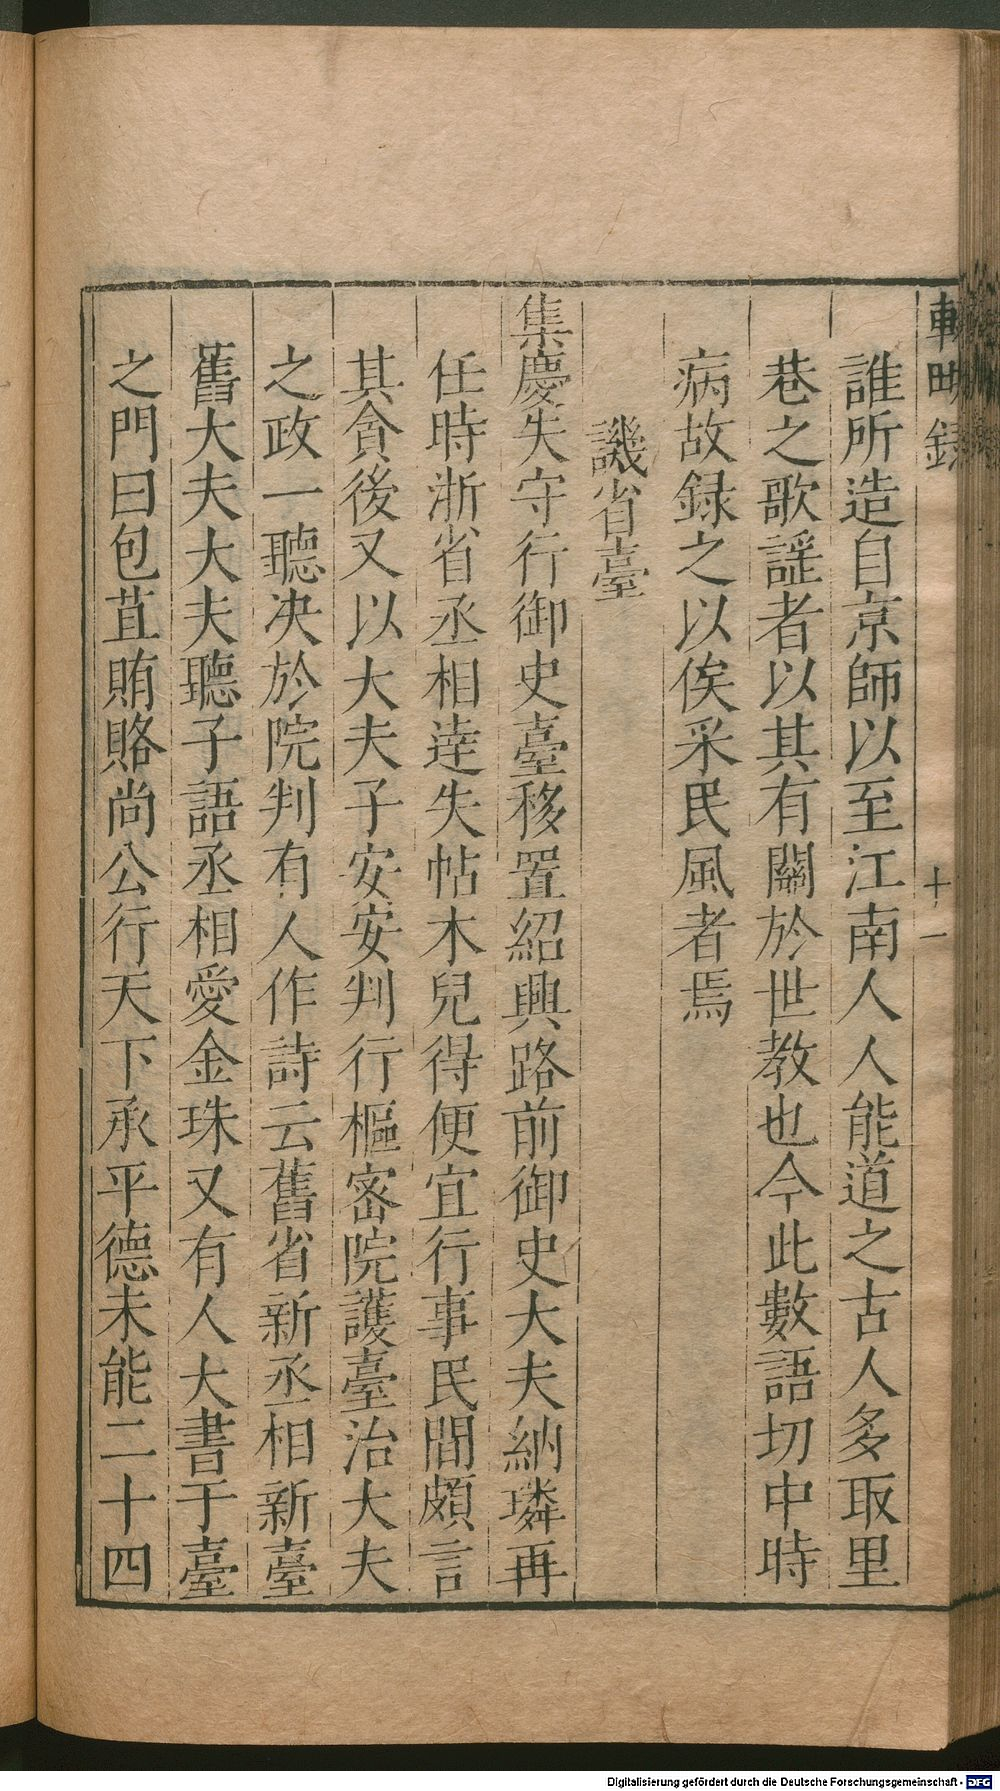 輟畊錄
十一
誰所造自京師以至江南人人能道之古人多取里
巷之歌謡者以其有關於世教也今此數語切中時
病故録之以俟采民風者焉
譏省臺
集慶失守行御史臺移置紹興路前御史大夫納璘再
任時浙省丞相逹失帖木兒得便宜行事民間頗言
其貪後又以大夫子安安判行樞密院護臺治大夫
之政一聽决於院判有人作詩云舊省新丞相新臺
舊大夫大夫聽子語丞相愛金珠又有人大書于臺
之門曰包苴賄賂尚公行天下承平德未能二十四
Digitalisierung gefördert durch die Deutsche Forschungsgemeinschaft - DFG